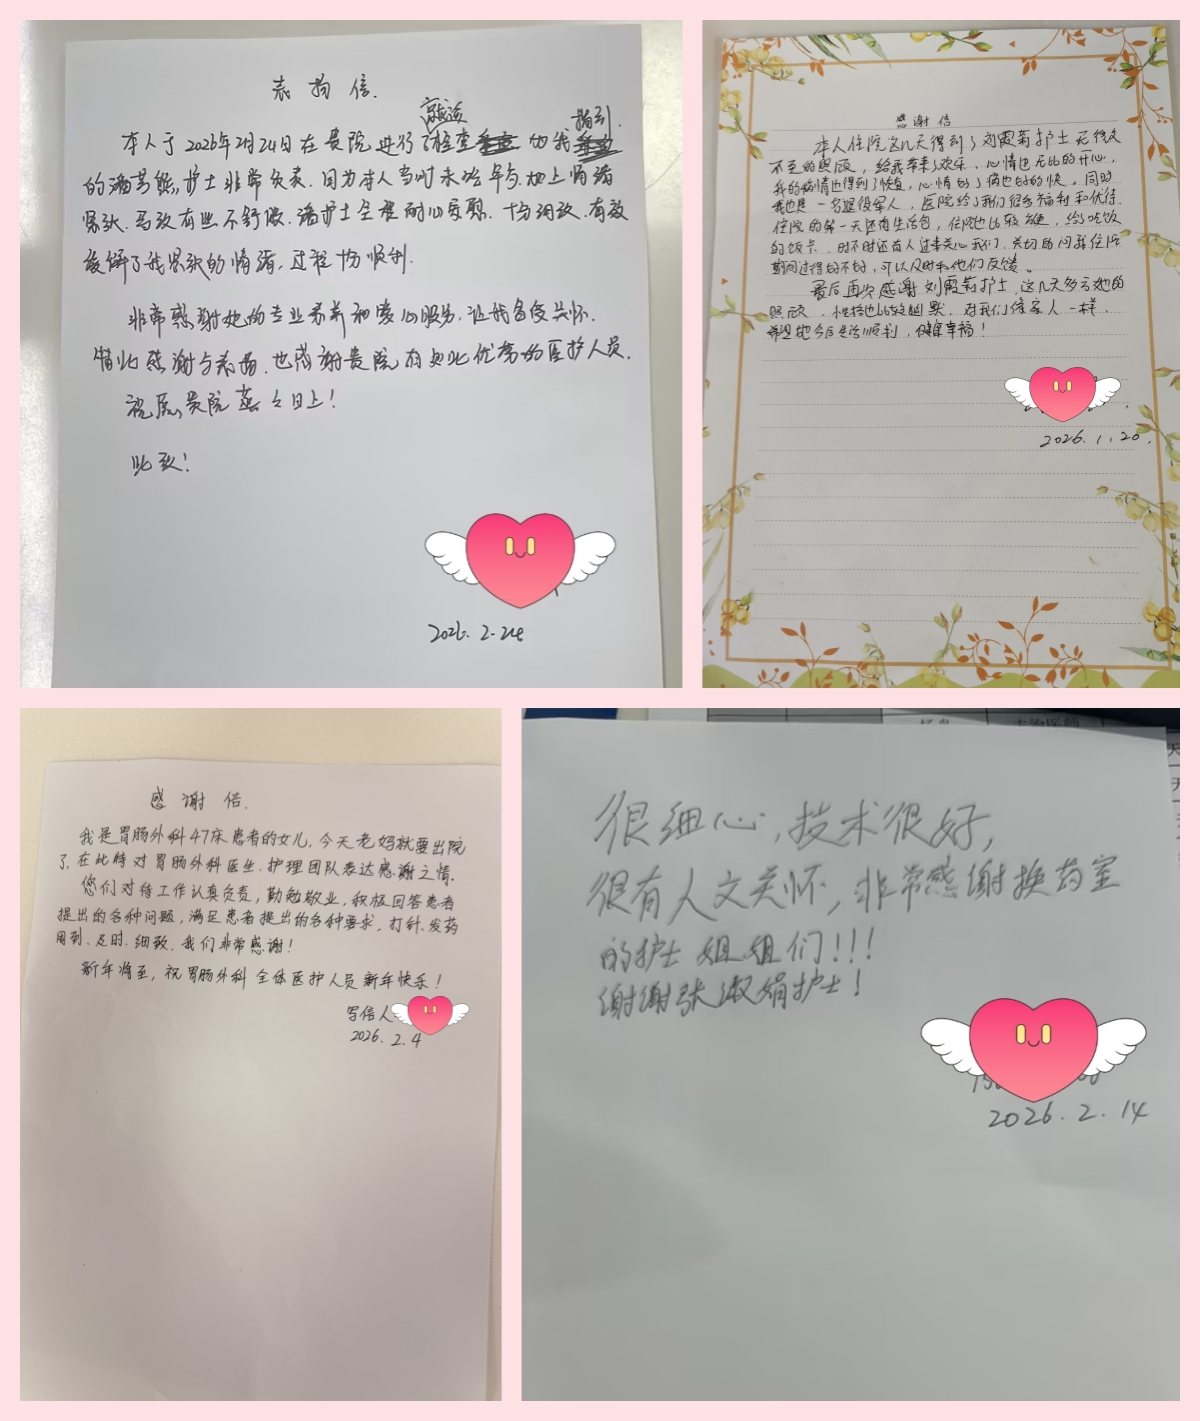 表扬信.
就诊
指引.
本人于2026年2月24日在贵院进行了检查 为我
的潘 护士非常负责.因为本人当时未吃早与.加上情绪
紧张.导致有些不舒服.潘护士全程耐心安慰.十分细致.有效
缓解了我紧张的情绪,过程十分顺利.
非常感谢她的专业素养和爱心服务.让我备受关怀.
借此感谢与表扬.也感谢贵院有如此优秀的医护人员.
祝愿贵院蒸々日上!
此致!
2026.2.24
感谢信
本人住院这几天得到了刘霞菊护士无微
不至的照顾,给我带来了欢乐、心情也无比的开心,
我的病情也得到了恢复,心情好了病也好的快。同时
我也是一名退役军人,医院给了我们很多福利和优待.
住院的第一天还有生活包,住院也比较方便,给了吃饭
的饭卡、时不时还有人过来关心我们、关切的问我住院
期间过得好不好,可以及时和他们反馈。
最后再次感谢刘霞菊护士,这几天多亏她的
照顾、性格也比较幽默、对我们像家人一样、
希望她今后生活顺利,健康幸福!
2026.1.20.
感谢信.
我是胃肠外科47床患者的女儿,今天老妈就要出院
了,在此特对胃肠外科医生、护理团队表达感谢之情.
您们对待工作认真负责,勤勉敬业,积极回答患者
提出的各种问题,满足患者提出的各种要求,打针、发药
周到、及时、细致.我们非常感谢!
新年将至,祝胃肠外科全体医护人员新年快乐!
写信人
2026.2.4
主治医师
很细心,技术很好,
很有人文关怀,非常感谢换药室
的护士姐姐们!!!
谢谢张淑娟护士!
2026.2.14